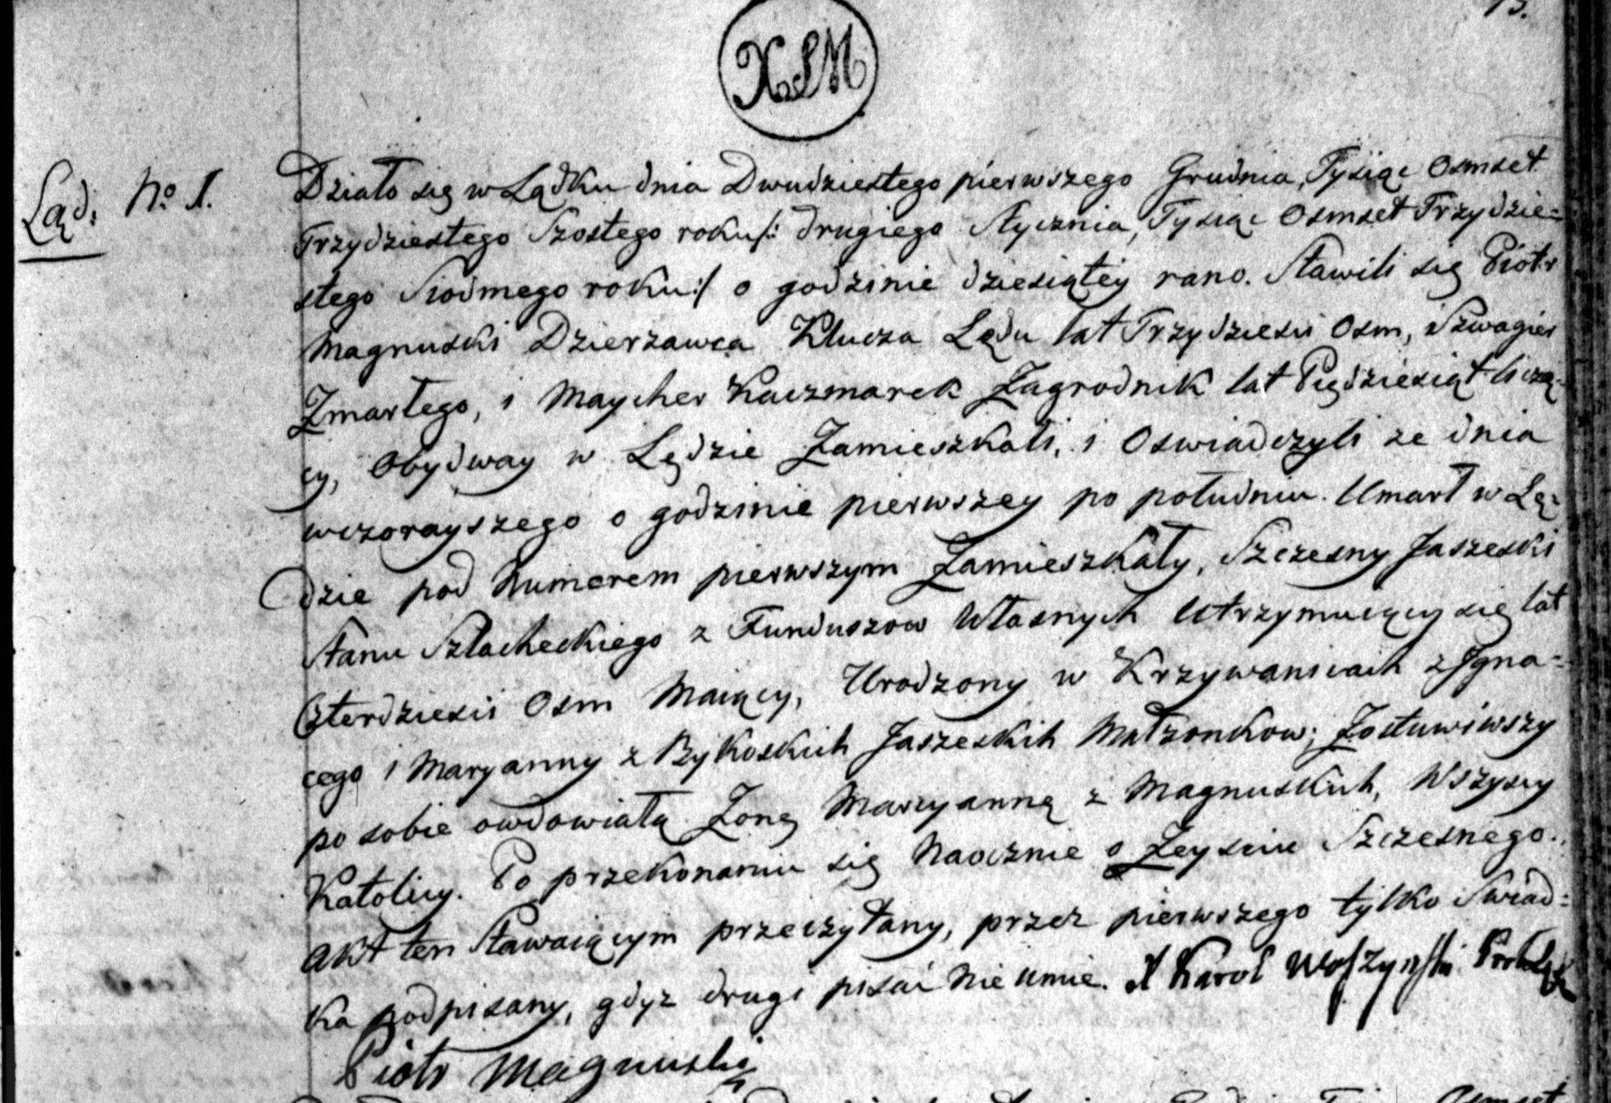 13.
XSM
Ląd: No 1. Działo się w Lądku dnia Dwudziestego pierwszego Grudnia, Tysiąc Osmset
Trzydziestego Szostego roku/: drugiego Stycznia, Tysiąc Osmset Trzydzie=
stego Siodmego roku:/ o godzinie dziesiątey rano. Stawili się Piotr
Magnuski Dzierzawca Klucza Lędu lat Trzydziesci Osm, Szwagier
Zmarłego, i Maycher Kaczmarek Zagrodnik lat Piędziesiąt liczą-
cy, Obydway w Lędzie Zamieszkali, i Oswiadczyli ze dnia
wczorayszego o godzinie pierwszey po południu. Umarł w Lę-
dzie pod Numerem pierwszym Zamieszkały, Szczesny Jaszeski
Stanu Szlacheckiego z Funduszow Własnych Utrzymuiący się lat
Czterdziesci Osm Maiący, Urodzony w Krzywanicach z Igna=
cego i Maryanny z Bykoskich Jaszeskich Małzonkow; Zostawiwszy
po sobie owdowiałą Zonę Maryannę z Magnuskich, Wszyscy
Katolicy. Po przekonaniu się Naocznie o Zeysciu Szczesnego.
Akt ten Stawaiącym przeczytany, przez pierwszego tylko Swiad=
ka podpisany, gdyz drugi pisać nie umie. X Karol
Piotr Magnuski